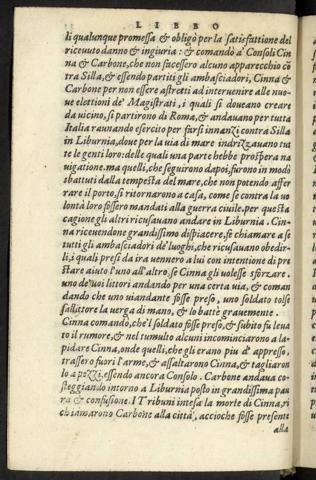 LIBRO
li qualunque promessa & obligò per la satisfattione del
riceuuto danno & ingiuria: & comandò a' Consoli Cin
na & Carbone, che non facessero alcuno apparecchio cõ
tra Silla, & essendo partiti gli ambasciadori, Cinna &
Carbone per non essere astretti ad interuenire alle nuo-
ue elettioni de' Magistrati, i quali si doueano creare
da uicino, si partirono di Roma, & andauano per tutta
Italia raunando esercito per farsi innanzi contra Silla
in Liburnia, doue per la uia di mare indrizzauano tut
te le genti loro: delle quali una parte hebbe prospera na
uigatione. ma quelli, che seguirono dapoi, furono in modo
sbattuti dalla tempesta del mare, che non potendo affer
rare il porto, si ritornarono a casa, come se contra la uo
lontà loro fossero mandati alla guerra ciuile. per questa
cagione gli altri ricusauano andare in Liburnia. Cin-
na riceuendone grandissimo dispiacere, fe chiamare a se
tutti gli ambasciadori de' luoghi, che ricusauano obedir-
li, i quali presi da ira uennero a lui con intentione di pre
stare aiuto l'uno all'altro, se Cinna gli uolesse sforzare.
uno de' suoi littori andando per una certa uia, & coman
dando che uno uiandante fosse preso, uno soldato tolse
sallittore la uerga di mano, & lo battè grauemente.
Cinna comando, che'l soldato fosse preso, & subito fu leua
to il rumore, & nel tumulto alcuni incominciarono a la-
pidare Cinna, onde quelli, che gli erano piu d'appresso,
trassero fuori l'arme, & assaltarono Cinna, & tagliaron
lo a pezzi, essendo ancora Consolo. Carbone andaua co-
steggiando intorno a Liburnia posto in grandissima pau
ra & confusione. I Tribuni intesa la morte di Cinna, ri
chiamarono Carbone alla città, accioche fosse presente
alla